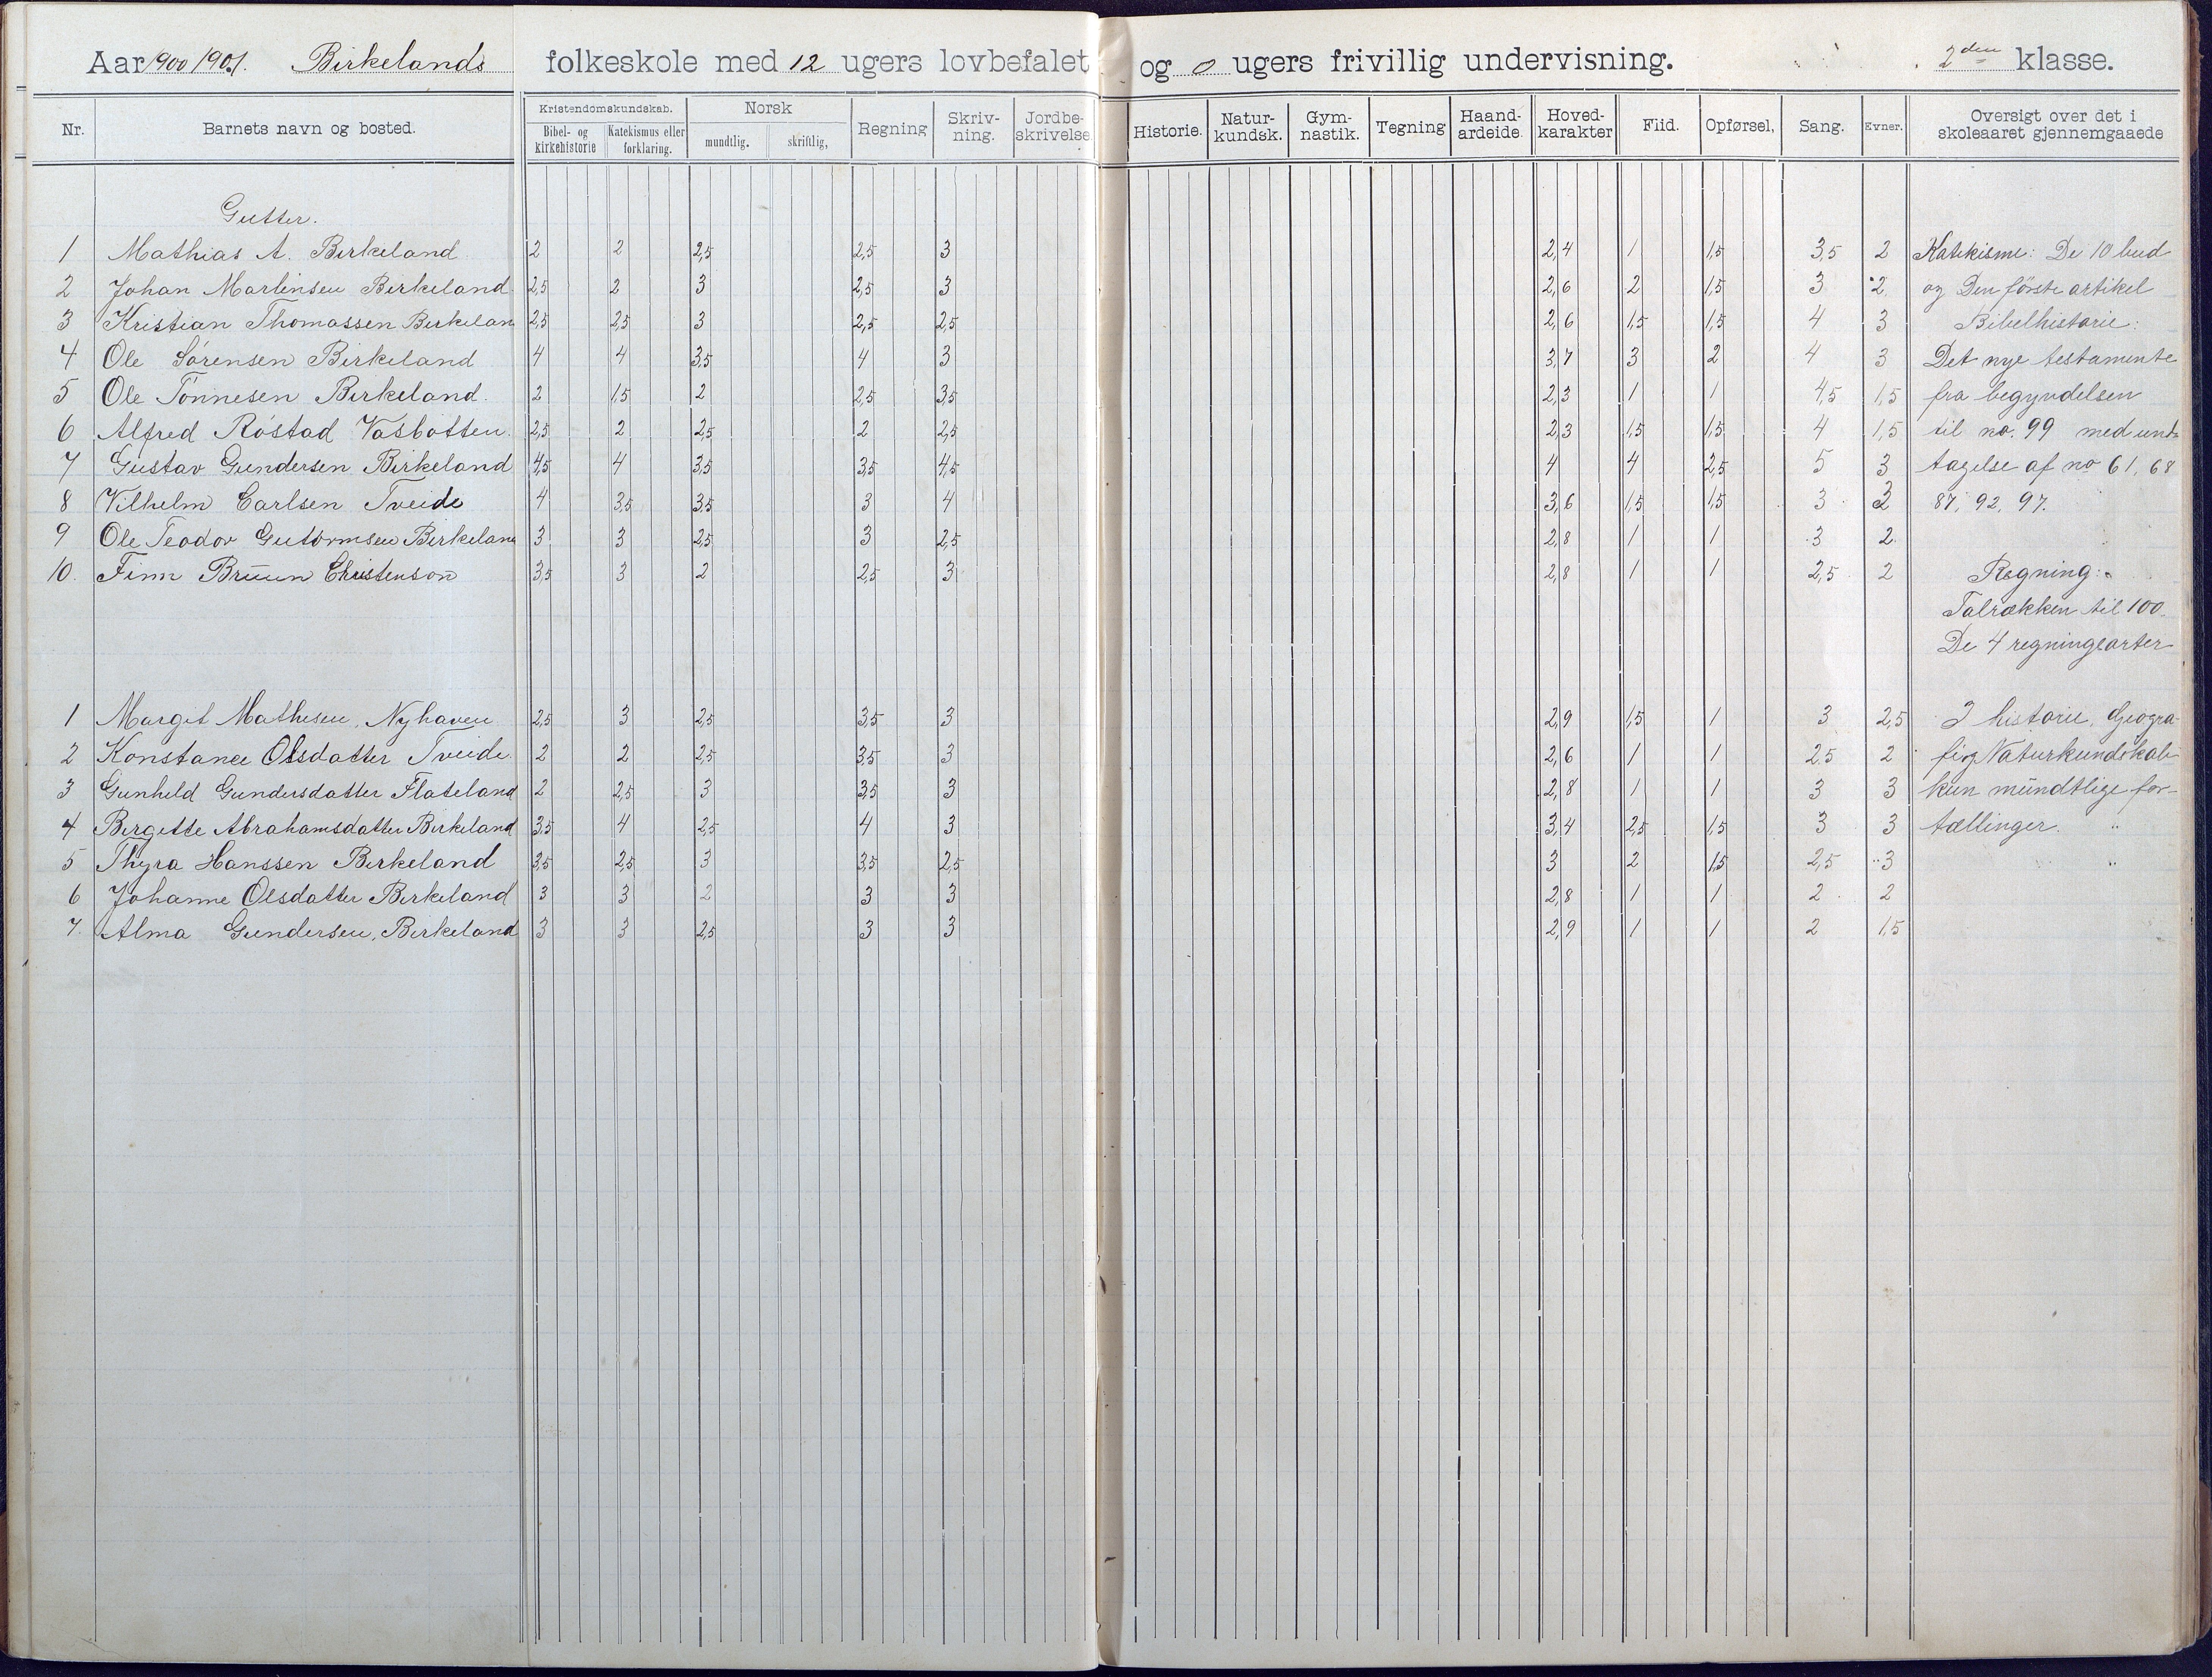 Aar 1900 1901. Birkelands folkeskole med 12 ugers lovbefalet og 0 ugers frivillig undervisning. 2den klasse.
Nr. Barnets navn og bosted. Kristendomskundskab. Bibel- og kirkehistorie Katekismus eller forklaring. Norsk mundtlig. skriftlig, Regning Skriv-ning. Jordbe-skrivelse Historie. Natur-kundsk. Gym-nastik. Tegning Haand-ardeide. Hoved-karakter Flid. Opførsel, Sang. Evner. Oversigt over det i skoleaaret gjennemgaaede
Gutter.
1 Mathias A. Birkeland 2 2 2,5 2,5 3 2,4 1 1,5 3,5 2 Katekisme: De 10 bud
2 Johan Martinsen Birkeland 2,5 2 3 2,5 3 2,6 2 1,5 3 2 og Den første artikel
3 Kristian Thomassen Birkelan 2,5 2,5 3 2,5 2,5 2,6 1,5 1,5 4 3 Bibelhistorie:
4 Ole Sørensen Birkeland 4 4 3,5 4 3 3,7 3 2 4 3 Det nye testamente
5 Ole Tønnesen Birkeland. 2 1,5 2 2,5 3,5 2,3 1 1 4,5 1,5 fra begyndelsen
6 Alfred Røstad Vasbotten. 2,5 2 2,5 2 2,5 2,3 1,5 1,5 4 1,5 til no. 99 med und-
7 Gustav Gundersen Birkeland 4,5 4 3,5 3,5 4,5 4 4 2,5 5 3 tagelse af no 61, 68
8 Vilhelm Carlsen Tveide 4 3,5 3,5 3 4 3,6 1,5 1,5 3 3 87, 92, 97.
9 Ole Teodor Gutormsen Birkeland 3 3 2,5 3 2,5 2,8 1 1 3 2
10. Finn Bruun Christenson 3,5 3 2 2,5 3 2,8 1 1 2,5 2 Regning:
Talrækken til 100.
De 4 regningearter
1 Margit Mathisen, Nyhaven 2,5 3 2,5 3,5 3 2,9 1,5 1 3 2,5 I historie, Geogra-
2 Konstance Olsdatter Tveide. 2 2 2,5 3,5 3 2,6 1 1 2,5 2 fi og Naturkundskab
3 Gunhild Gundersdatter Flateland 2 2,5 3 3,5 3 2,8 1 1 3 3 kun mundtlige for-
4 Birgitte Abrahamsdatter Birkeland 3,5 4 2,5 4 3 3,4 2,5 1,5 3 3 tællinger.
5 Thyra Hanssen Birkeland 3,5 2,5 3 3,5 2,5 3 2 1,5 2,5 3
6 Johanne Olsdatter Birkeland 3 3 2 3 3 2,8 1 1 2 2
7. Alma Gundersen, Birkeland 3 3 2,5 3 3 2,9 1 1 2 1,5